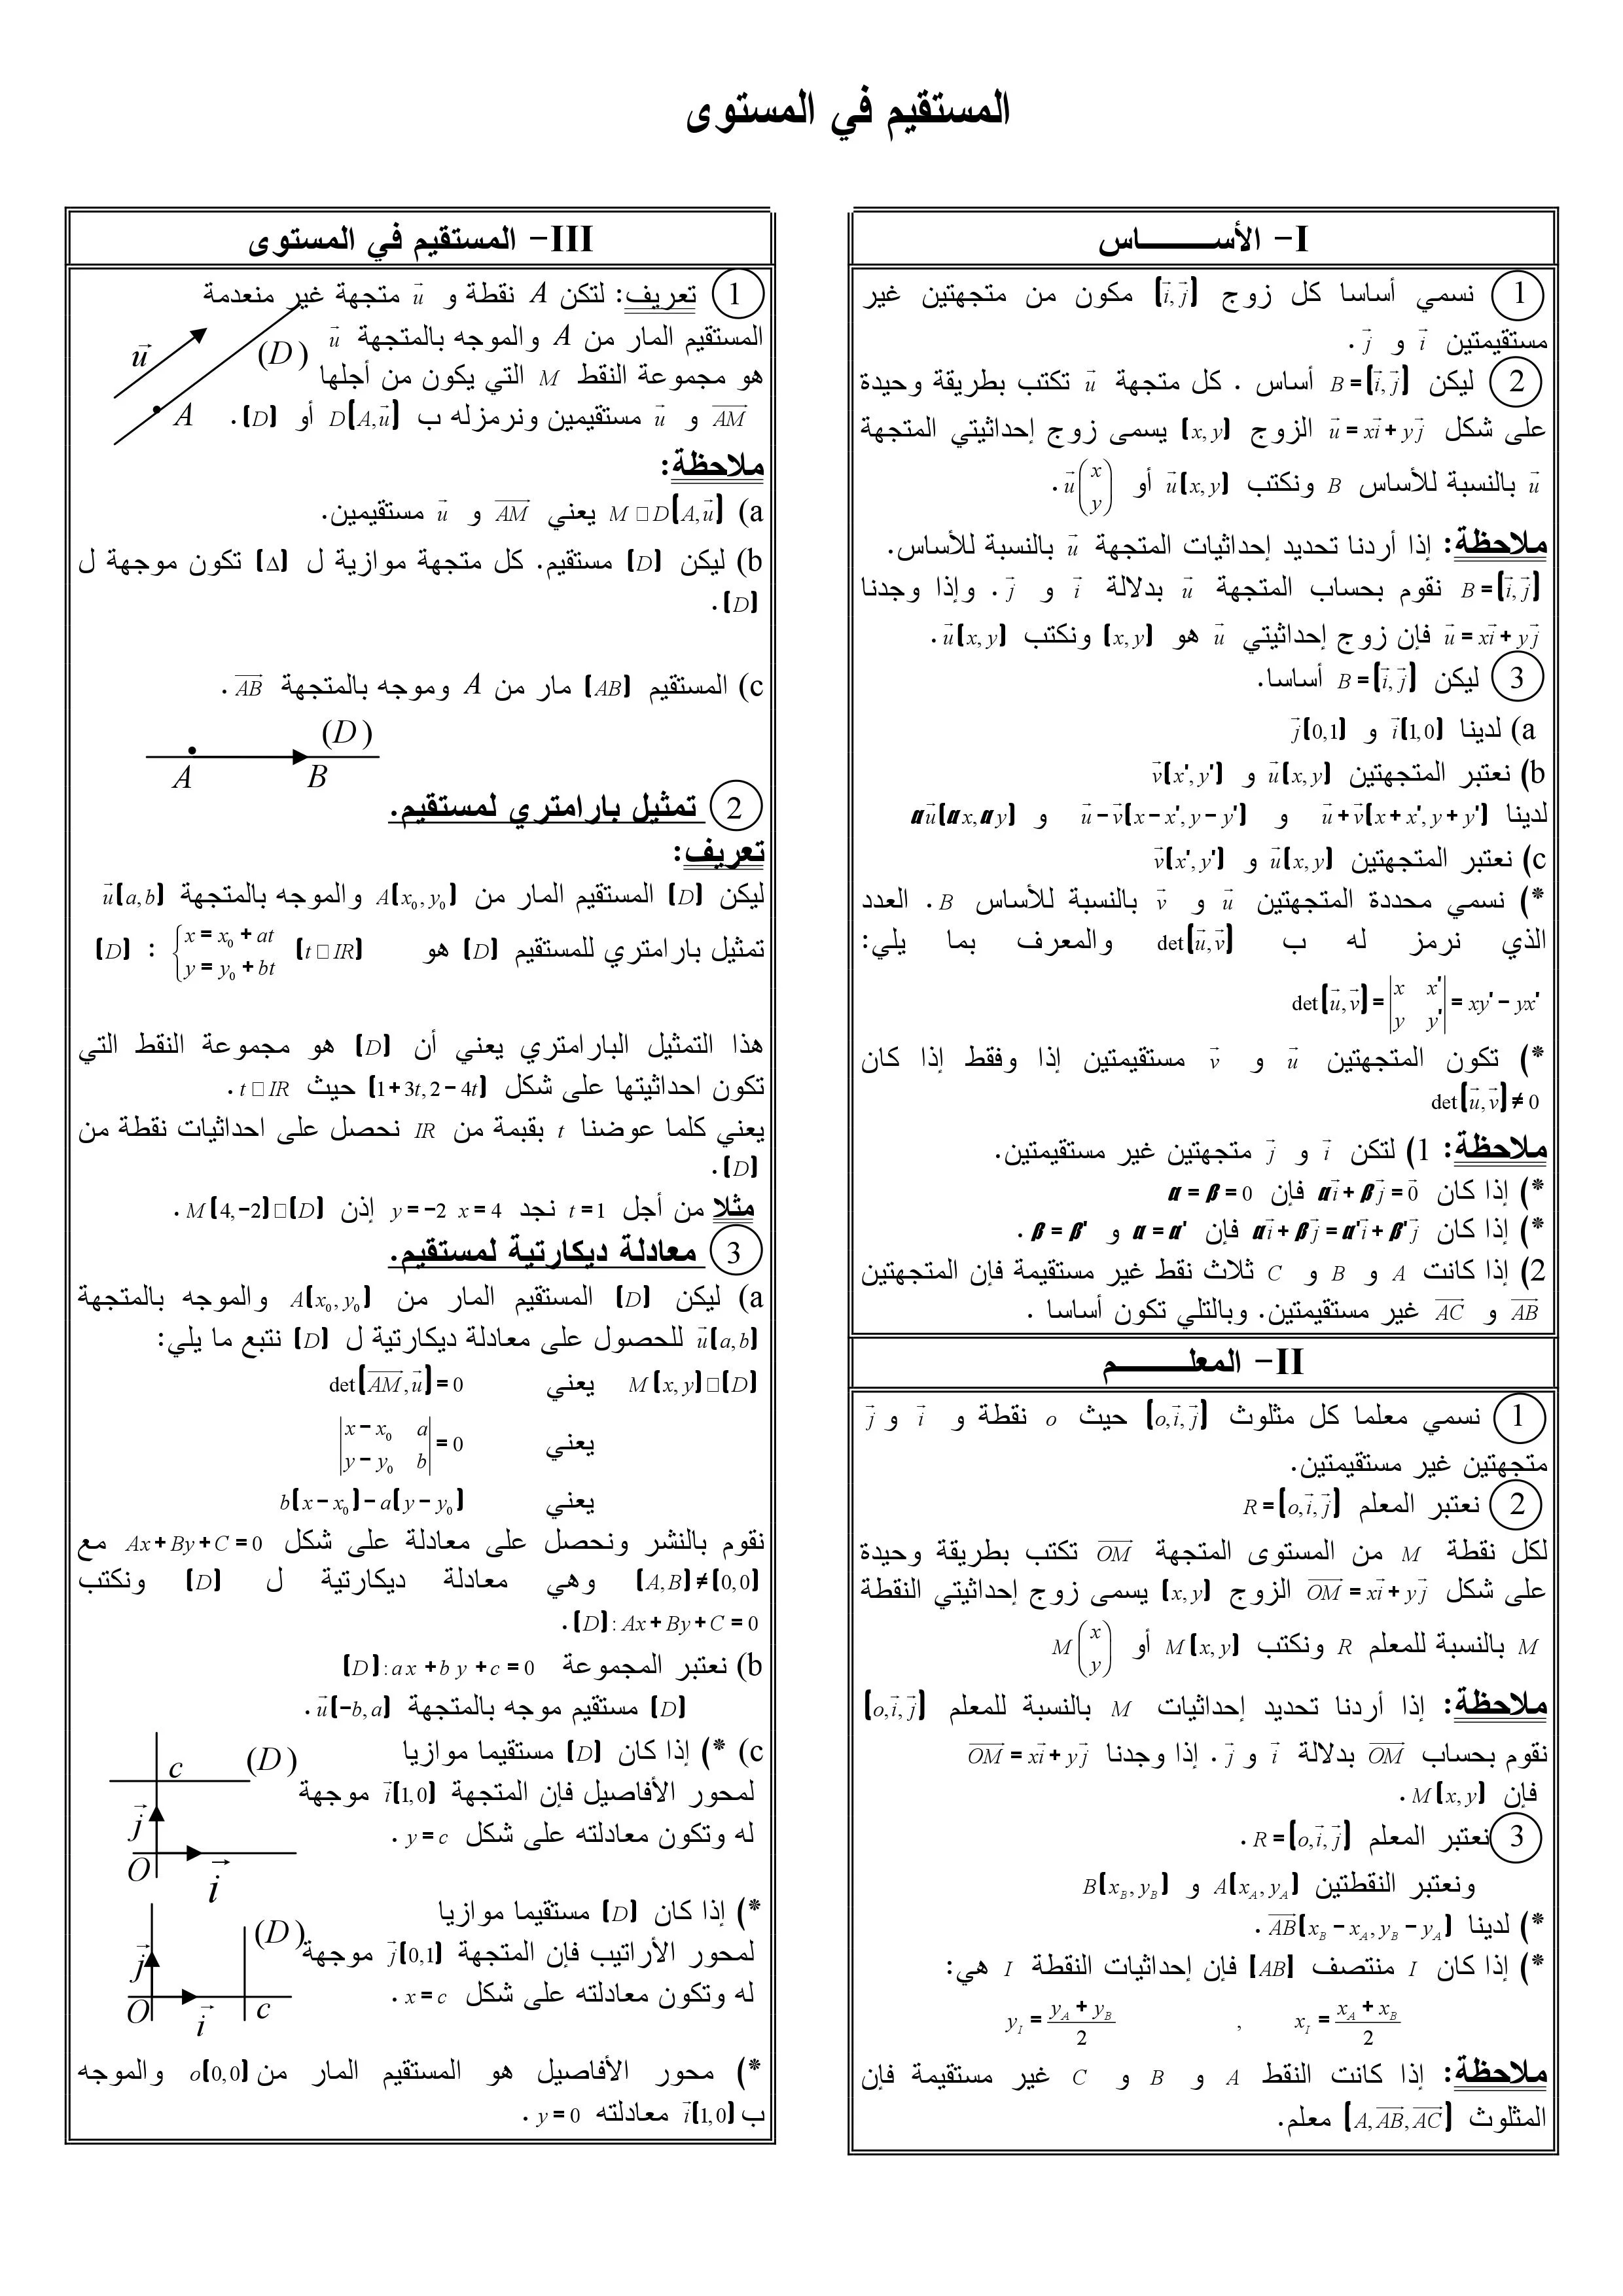 المستقيم في المستوى
I- الأســـــاس
1 نسمي أساسا كل زوج (i⃗, j⃗) مكون من متجهتين غير
مستقيمتين i⃗ و j⃗ .
2 ليكن B = (i⃗, j⃗) أساس . كل متجهة u⃗ تكتب بطريقة وحيدة
على شكل u⃗ = xi⃗ + yj⃗ الزوج (x, y) يسمى زوج إحداثيتي المتجهة
u⃗ بالنسبة للأساس B ونكتب u⃗(x, y) أو u⃗(x y).
ملاحظة: إذا أردنا تحديد إحداثيات المتجهة u⃗ بالنسبة للأساس.
B = (i⃗, j⃗) نقوم بحساب المتجهة u⃗ بدلالة i⃗ و j⃗ . وإذا وجدنا
u⃗ = xi⃗ + yj⃗ فإن زوج إحداثيتي u⃗ هو (x, y) ونكتب u⃗(x, y).
3 ليكن B = (i⃗, j⃗) أساسا.
a) لدينا i⃗(1,0) و j⃗(0,1)
b) نعتبر المتجهتين u⃗(x, y) و v⃗(x', y')
لدينا u⃗ + v⃗(x + x', y + y') و u⃗ − v⃗(x − x', y − y') و αu⃗(αx, αy)
c) نعتبر المتجهتين u⃗(x, y) و v⃗(x', y')
*) نسمي محددة المتجهتين u⃗ و v⃗ بالنسبة للأساس B . العدد
الذي نرمز له ب det(u⃗, v⃗) والمعرف بما يلي:
det(u⃗, v⃗) = |x x' y y'| = xy' − yx'
*) تكون المتجهتين u⃗ و v⃗ مستقيمتين إذا وفقط إذا كان
det(u⃗, v⃗) ≠ 0
ملاحظة: 1) لتكن i⃗ و j⃗ متجهتين غير مستقيمتين.
*) إذا كان αi⃗ + βj⃗ = 0⃗ فإن α = β = 0
*) إذا كان αi⃗ + βj⃗ = α'i⃗ + β'j⃗ فإن α = α' و β = β' .
2) إذا كانت A و B و C ثلاث نقط غير مستقيمة فإن المتجهتين
AB⃗ و AC⃗ غير مستقيمتين. وبالتلي تكون أساسا .
II- المعلـــــم
1 نسمي معلما كل مثلوث (o, i⃗, j⃗) حيث o نقطة و i⃗ و j⃗
متجهتين غير مستقيمتين.
2 نعتبر المعلم R = (o, i⃗, j⃗)
لكل نقطة M من المستوى المتجهة OM⃗ تكتب بطريقة وحيدة
على شكل OM⃗ = xi⃗ + yj⃗ الزوج (x, y) يسمى زوج إحداثيتي النقطة
M بالنسبة للمعلم R ونكتب M(x, y) أو M(x y)
ملاحظة: إذا أردنا تحديد إحداثيات M بالنسبة للمعلم (o, i⃗, j⃗)
نقوم بحساب OM⃗ بدلالة i⃗ و j⃗ . إذا وجدنا OM⃗ = xi⃗ + yj⃗
فإن M(x, y) .
3 نعتبر المعلم R = (o, i⃗, j⃗) .
ونعتبر النقطتين A(x_A, y_A) و B(x_B, y_B)
*) لدينا AB⃗(x_B − x_A, y_B − y_A) .
*) إذا كان I منتصف [AB] فإن إحداثيات النقطة I هي:
x_I = (x_A + x_B)/2 , y_I = (y_A + y_B)/2
ملاحظة: إذا كانت النقط A و B و C غير مستقيمة فإن
المثلوث (A, AB⃗, AC⃗) معلم.
III- المستقيم في المستوى
1 تعريف: لتكن A نقطة و u⃗ متجهة غير منعدمة
المستقيم المار من A والموجه بالمتجهة u⃗
هو مجموعة النقط M التي يكون من أجلها
AM⃗ و u⃗ مستقيمين ونرمزله ب D(A, u⃗) أو (D) .
u⃗ (D) A
ملاحظة:
a) M □ D(A, u⃗) يعني AM⃗ و u⃗ مستقيمين.
b) ليكن (D) مستقيم. كل متجهة موازية ل (Δ) تكون موجهة ل
(D) .
c) المستقيم (AB) مار من A وموجه بالمتجهة AB⃗ .
(D)
A B
2 تمثيل بارامتري لمستقيم.
تعريف:
ليكن (D) المستقيم المار من A(x₀, y₀) والموجه بالمتجهة u⃗(a, b)
تمثيل بارامتري للمستقيم (D) هو (t □ IR) { x = x₀ + at y = y₀ + bt : (D)
هذا التمثيل البارامتري يعني أن (D) هو مجموعة النقط التي
تكون احداثيتها على شكل (1 + 3t, 2 − 4t) حيث t □ IR .
يعني كلما عوضنا t بقبمة من IR نحصل على احداثيات نقطة من
(D) .
مثلا من أجل t = 1 نجد x = 4 y = −2 إذن M(4, −2) □ (D) .
3 معادلة ديكارتية لمستقيم.
a) ليكن (D) المستقيم المار من A(x₀, y₀) والموجه بالمتجهة
u⃗(a, b) للحصول على معادلة ديكارتية ل (D) نتبع ما يلي:
M(x, y) □ (D) يعني det(AM⃗, u⃗) = 0
يعني |x − x₀ a y − y₀ b| = 0
يعني b(x − x₀) − a(y − y₀)
نقوم بالنشر ونحصل على معادلة على شكل Ax + By + C = 0 مع
(A, B) ≠ (0,0) وهي معادلة ديكارتية ل (D) ونكتب
(D): Ax + By + C = 0 .
b) نعتبر المجموعة (D): ax + by + c = 0
(D) مستقيم موجه بالمتجهة u⃗(−b, a) .
c) *) إذا كان (D) مستقيما موازيا
لمحور الأفاصيل فإن المتجهة i⃗(1,0) موجهة
له وتكون معادلته على شكل y = c .
c (D)
j⃗
O i⃗
*) إذا كان (D) مستقيما موازيا
لمحور الأراتيب فإن المتجهة j⃗(0,1) موجهة
له وتكون معادلته على شكل x = c .
(D)
j⃗
O i⃗ c
*) محور الأفاصيل هو المستقيم المار من o(0,0) والموجه
ب i⃗(1,0) معادلته y = 0 .